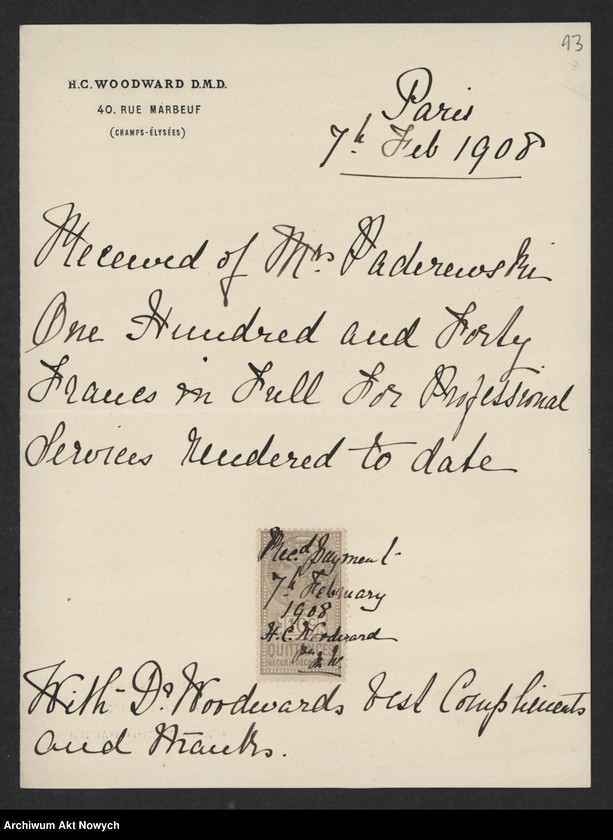 93
H.C. WOODWARD D.M.D.
40. RUE MARBEUF
(CHAMPS-ÉLYSÉES)
Paris
7th Feb 1908
Received of Mrs Paderewski
One Hundred and Forty
Francs in Full For Professional
Services rendered to date
Rec.d payment
7th February
1908
H.C. Woodward
QUITTANCES
With Dr Woodwards best Compliments
and thanks.
Archiwum Akt Nowych